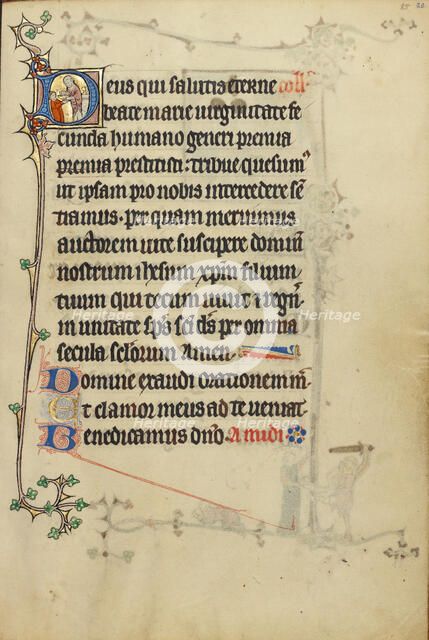 25 20
Deus qui salutis eterne coll'
beate marie uirginitate fe
cunda humano generi premia
premia prestitisti: tribue quesum9
ut ipsam pro nobis intercedere sẽ
tiamus. per quam meruimus
auctorem uite suscipere dominũ
nostrum ihesum xp̃m filium
tuum qui tecum uiuit ⁊ regñ
in unitate sp̃s sc̃i d̃s per omnia
secula sc̃lorum Amen.
Domine exaudi orationem m̃
Et clamor meus ad te ueniat
Benedicamus dño. A midi
Heritage
Heritage
Heritage
Heritage
Heritage